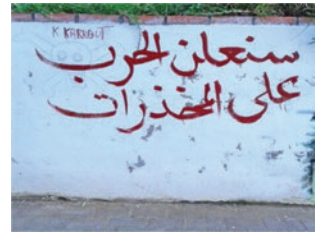 K KARABUT
سنعلن الحرب
على المخدرات